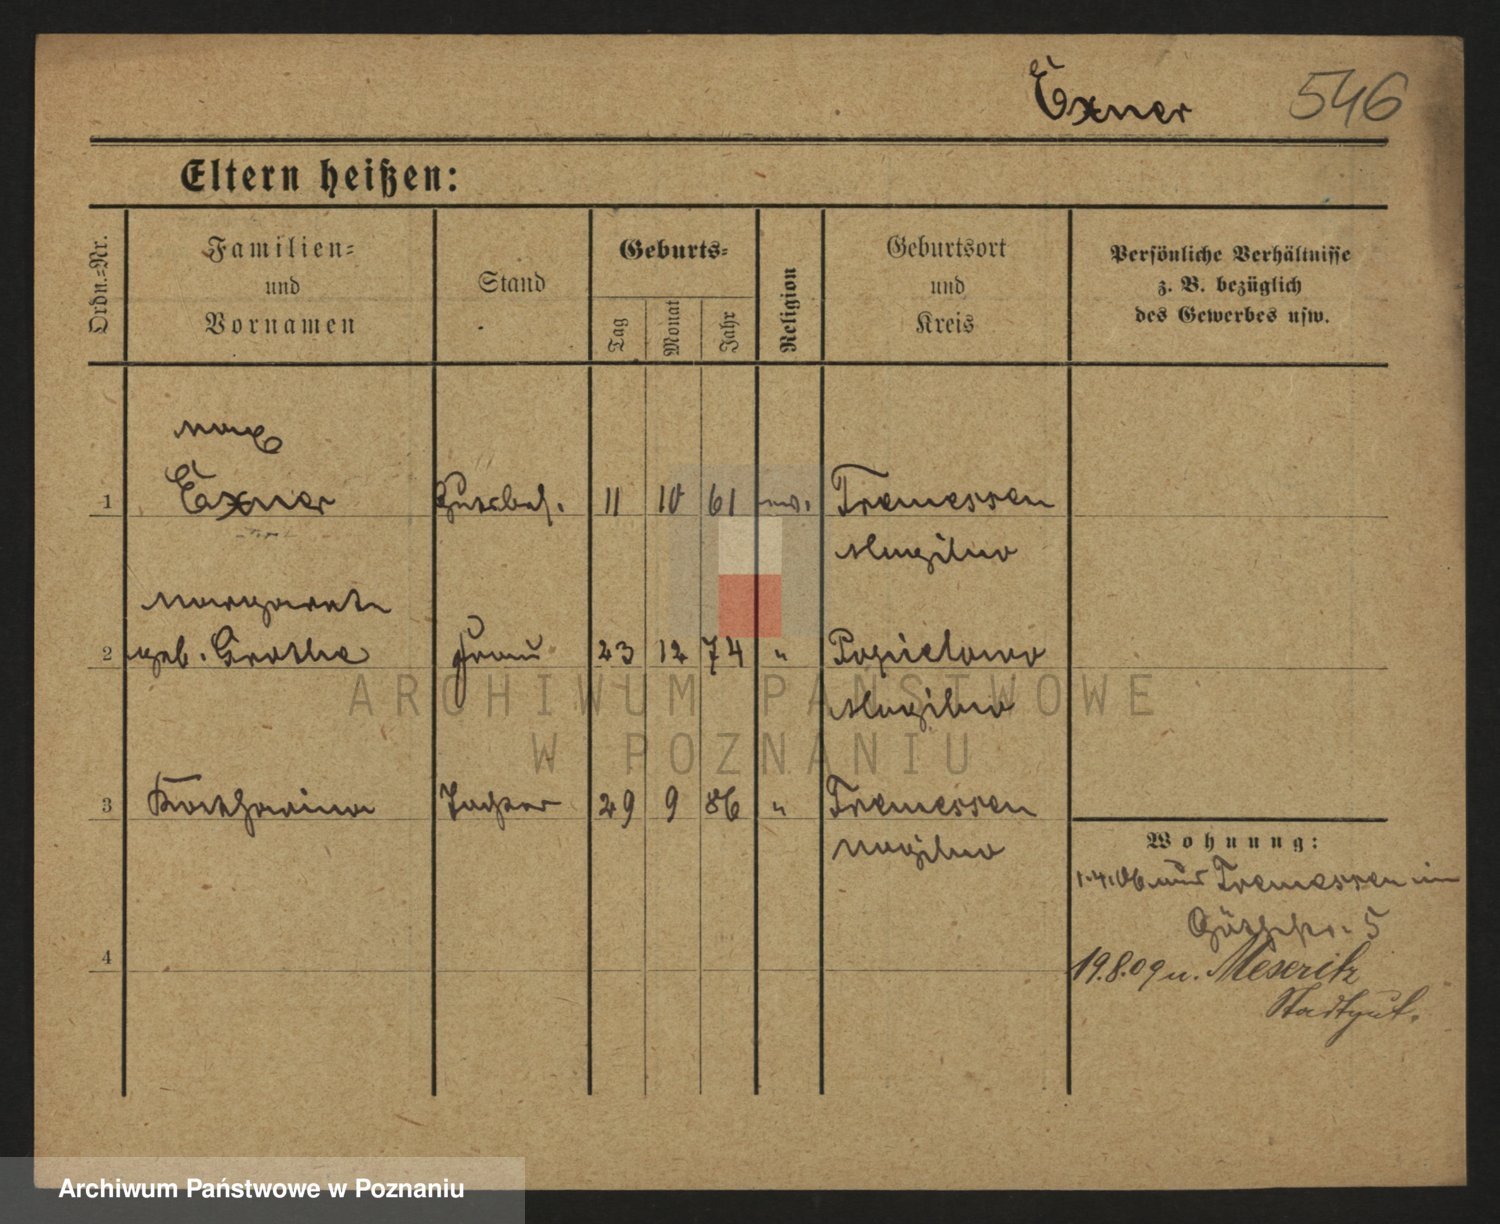 Exner 546
Eltern heißen:
Ordn.=Nr.
Familien=
und
Vornamen
Stand
Geburts=
Tag
Monat
Jahr
Religion
Geburtsort
und
Kreis
Persönliche Verhältnisse
z. B. bezüglich
des Gewerbes usw.
Max
1 Exner Gutsbes. 11 10 61 Tremessen
Mogilno
Margarete
2 geb. Grothe Frau 23 12 74 " Popielowo
Mogilno
3 Katharina Tochter 29 9 86 " Tremessen
Mogilno
Wohnung:
1.4.06 aus Tremessen in
5
4
19.8.09 n. Meseritz
Stadtgut.
ARCHIWUM PAŃSTWOWE
W POZNANIU
Archiwum Państwowe w Poznaniu